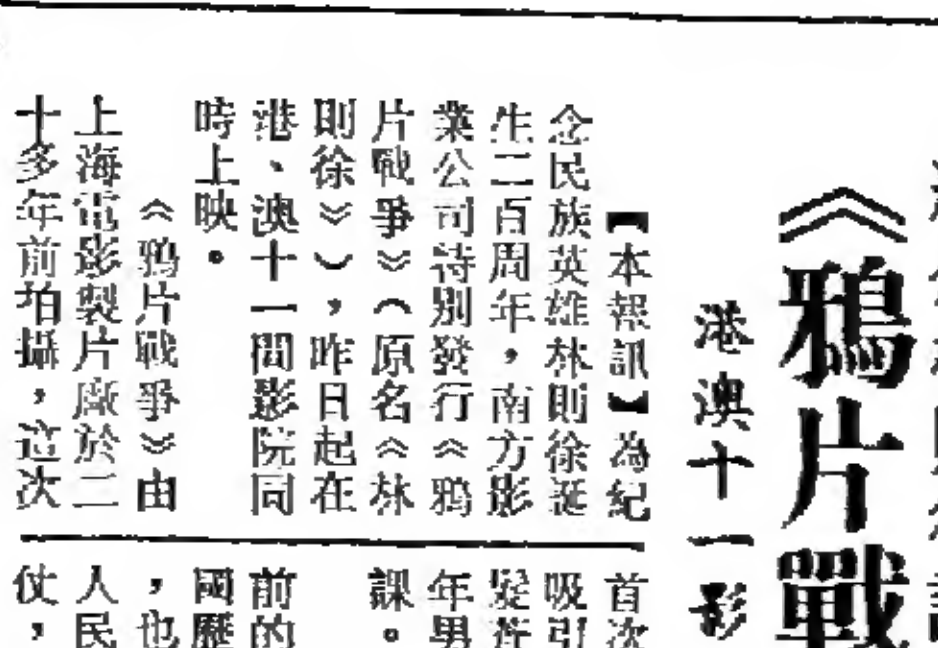 《鴉片戰
港澳十一影
【本報訊】為紀
念民族英雄林則徐誕
生二百周年，南方影
業公司特別發行《鴉
片戰爭》（原名《林
則徐》），昨日起在
港、澳十一間影院同
時上映。
《鴉片戰爭》由
上海電影製片廠於二
十多年前拍攝，這次
首次
吸引
年男
課。
前的
國歷
，也
人民
仗，